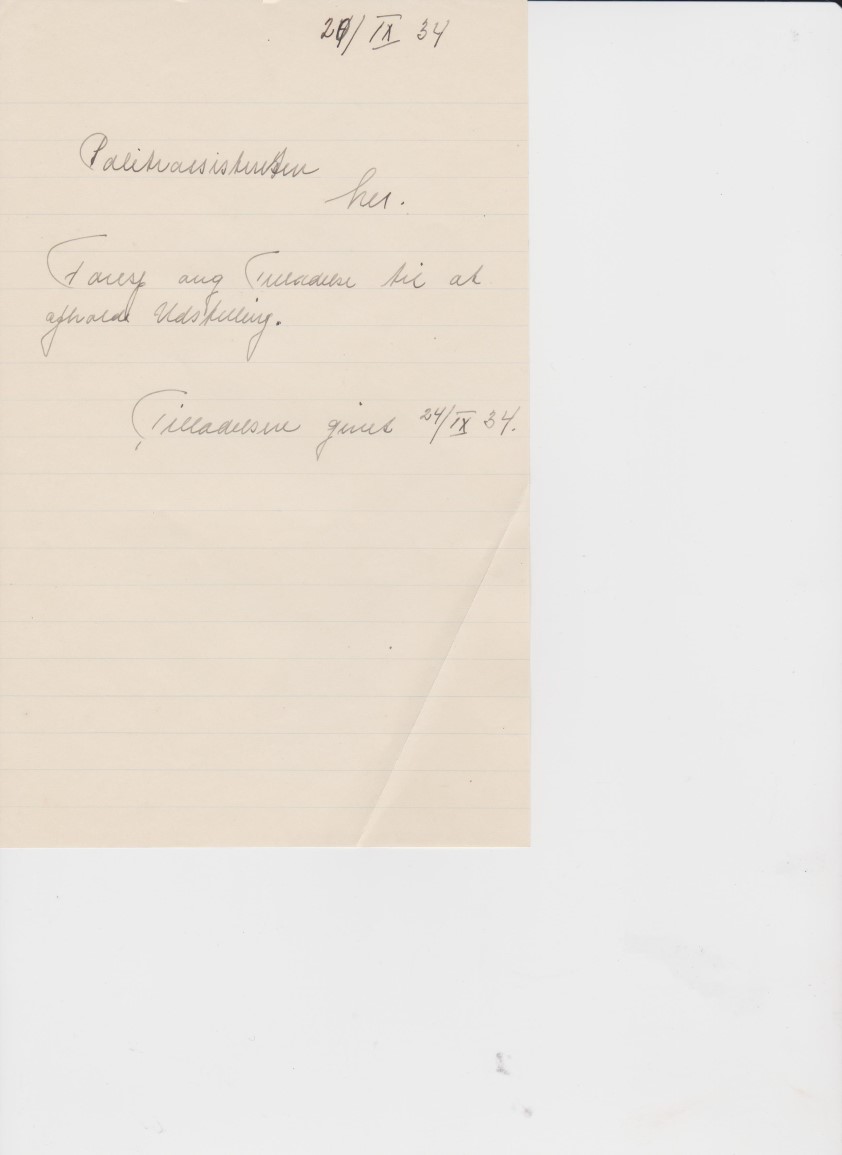 /IX 34
Politiassistenten
her.
Foresp ang Tilladelse til at
afholde Udstilling.
Tilladelsen givet 24/IX 34.